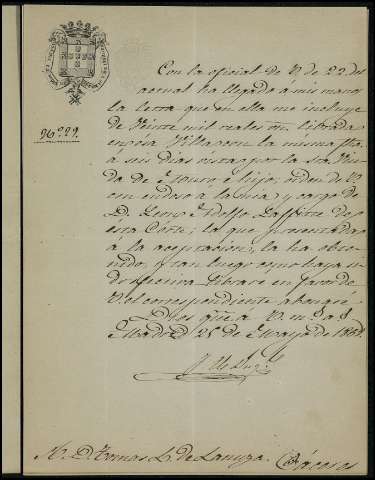 Nº 22.
Con la oficial de V. de 22 del
actual ha llegado á mis manos
la letra que en ella me incluye
de Veinte mil reales vn. librada
en esa Villa con la misma fha.
á seis dias vista por la Sra. Viuda
de é hijo, orden de V.
con endoso á la mia, y cargo de
D. Adolfo de
esta Corte; la que presentada
á la aceptacion, la ha obte-
nido, y tan luego como haya si-
do libraré en favor de
V. el correspondiente abonaré.
Dios gue. á V. m. a. s.
Madrid 25 de Mayo de
S. D. Tomas L. de Lanuza. Cáceres